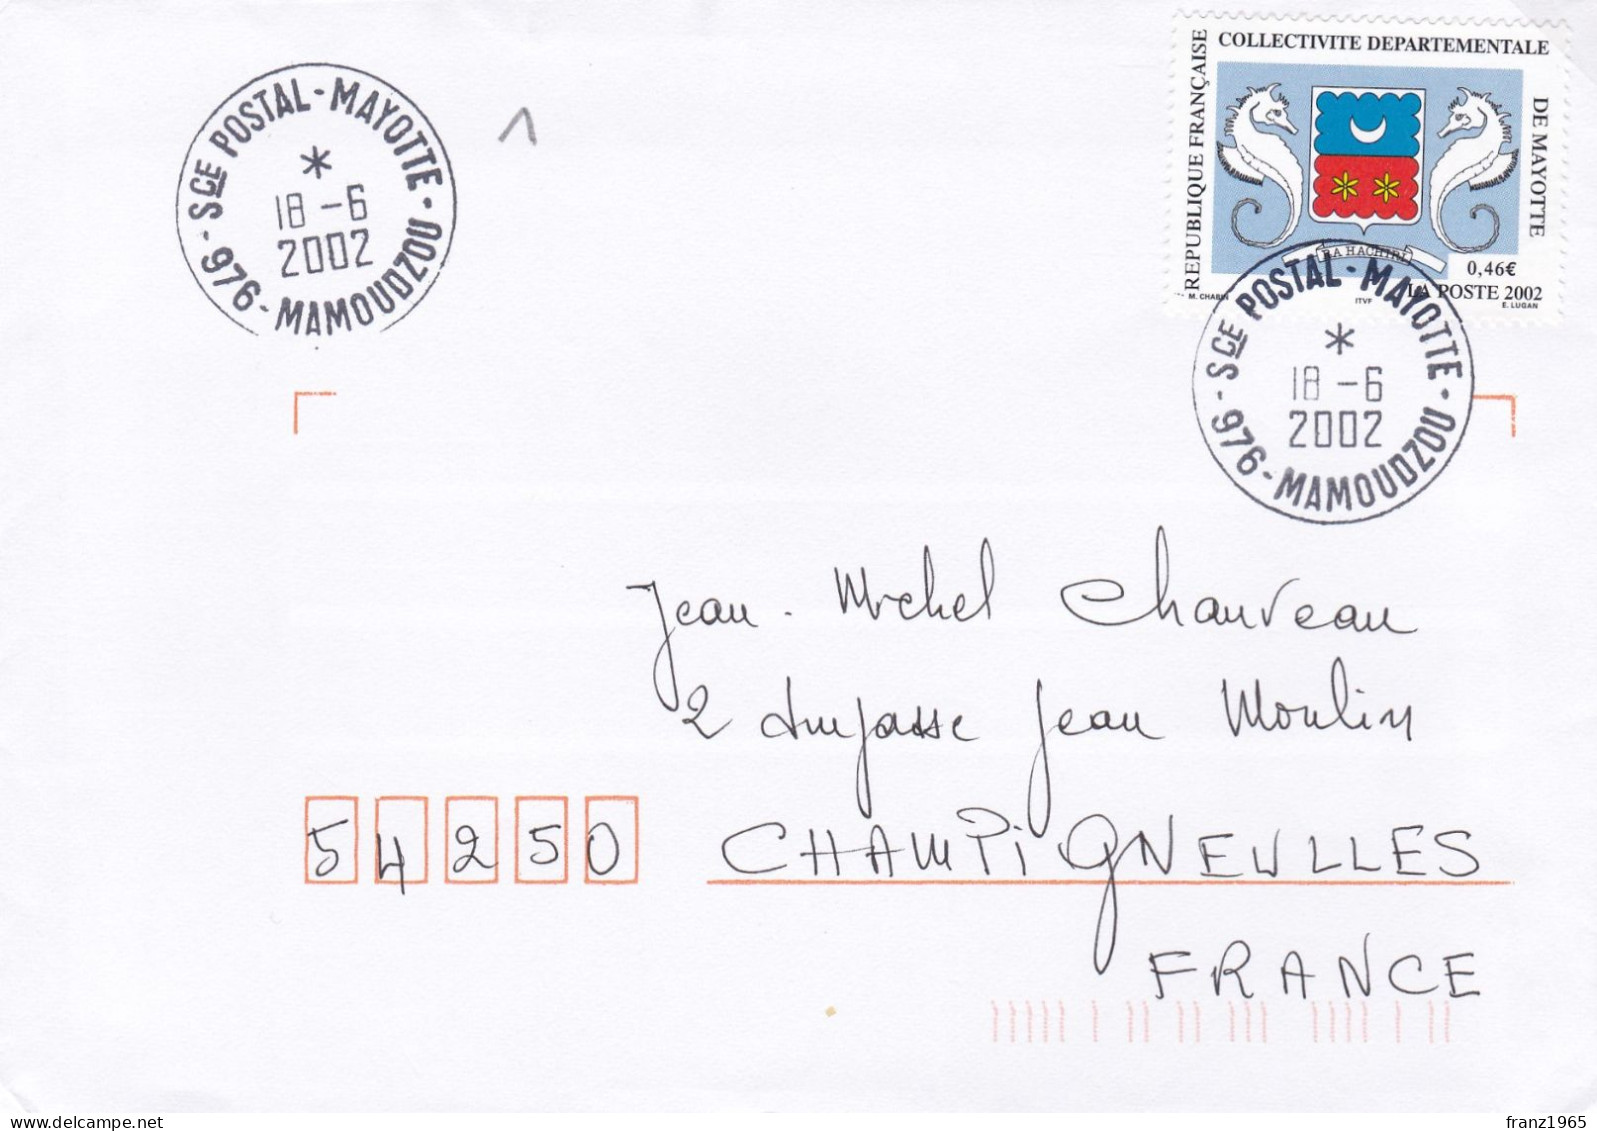 SCE POSTAL - MAYOTTE - 976 - MAMOUDZOU
*
18 - 6
2002
COLLECTIVITE DEPARTEMENTALE
DE MAYOTTE
REPUBLIQUE FRANÇAISE
RA HACHIRI
0,46€
LA POSTE 2002
M. CHABIN
ITVF
E. LUGAN
SCE POSTAL - MAYOTTE - 976 - MAMOUDZOU
*
18 - 6
2002
Jean-Michel Chauveau
2 Impasse Jean Moulin
54250 CHAMPIGNEULLES
FRANCE
franz1965